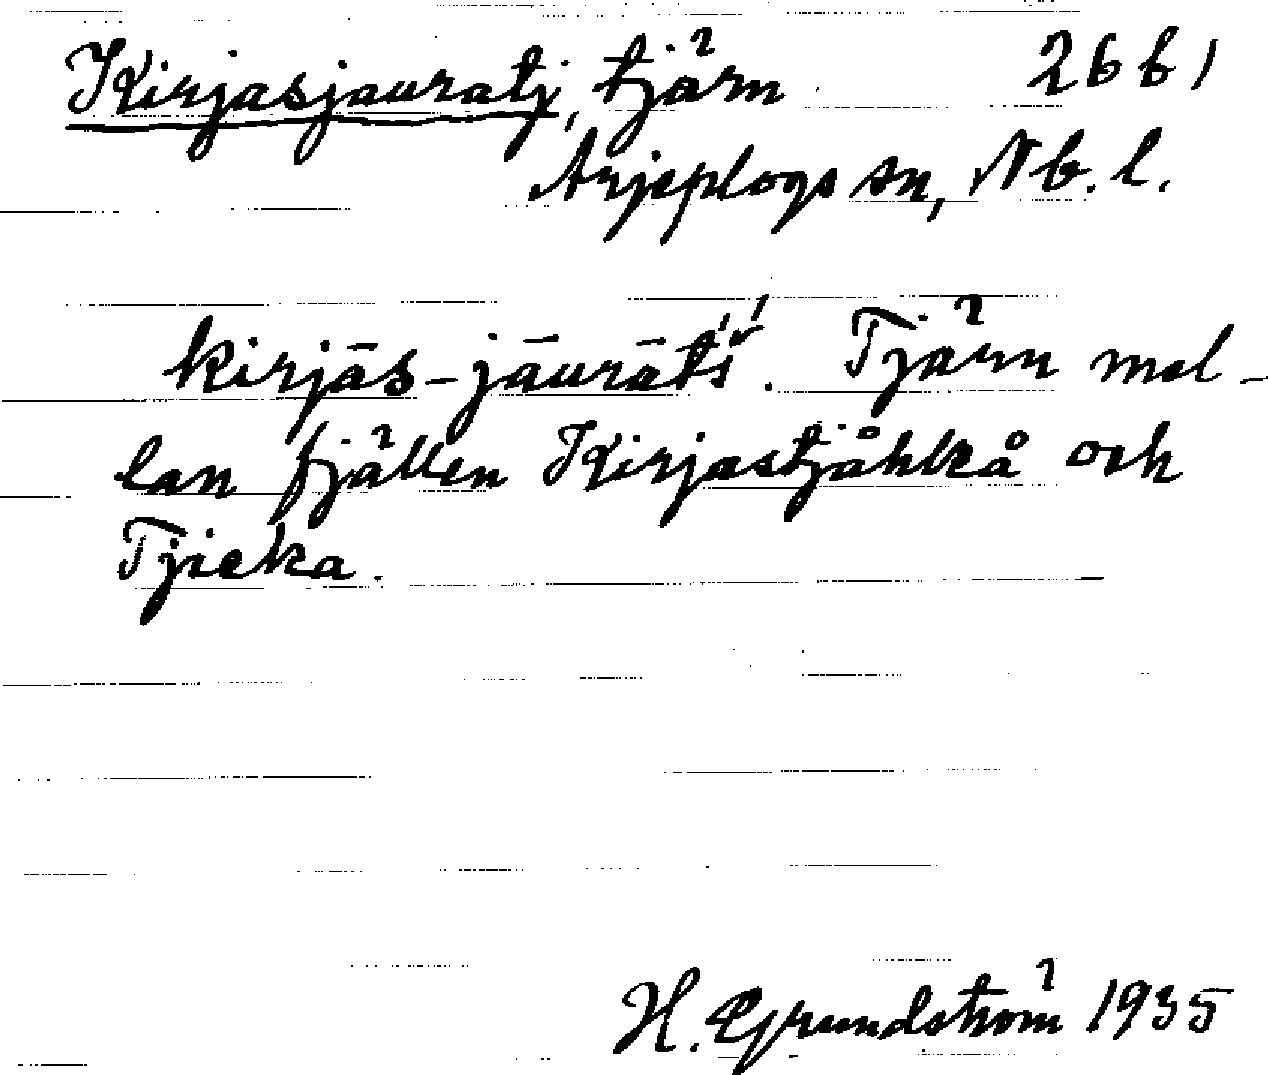 Kirjasjauratj, tjärn 26 b 1
Arjeplogs sn, Nb. l.
kirjās-jāurāt́š́. Tjärn mel-
lan fjällen Kirjastjåhkkå och
Tjieka.
H. Grundström 1935